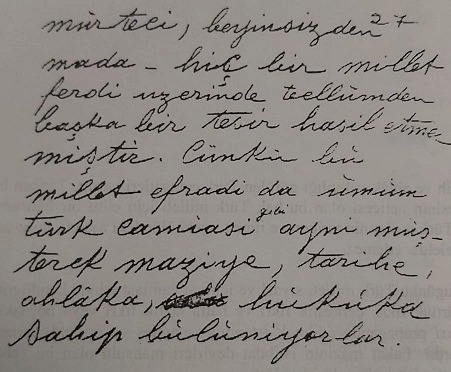 mürteci, beyinsizden 27
mada - hiç bir millet
ferdi uzerinde teellümden
başka bir tesir hasil etme-
miştir. Cünkü bu
millet efradi da ümum
türk camiasi gibi aynı müş-
terek maziye, tarihe,
ahlâka, hukuka
sahip bülünüyorlar.